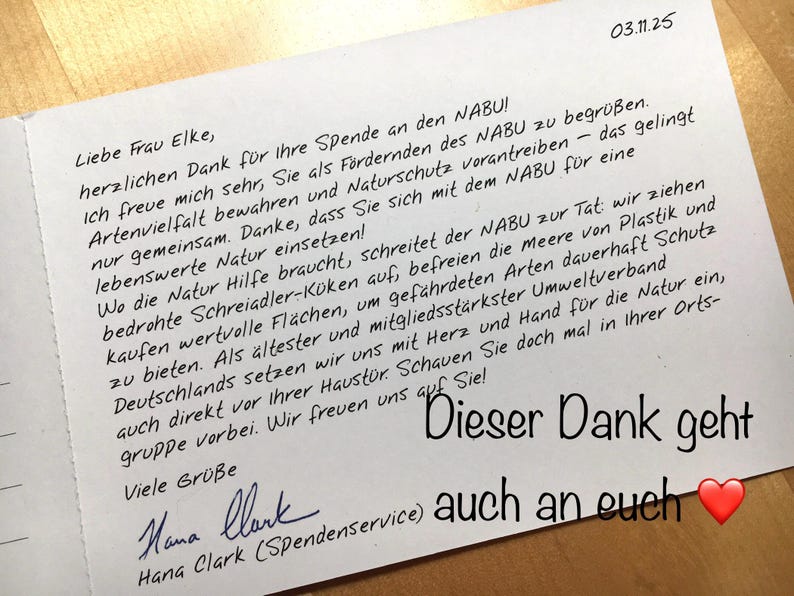 03.11.25
Liebe Frau Elke,
herzlichen Dank für Ihre Spende an den NABU!
Ich freue mich sehr, Sie als Fördernden des NABU zu begrüßen.
Artenvielfalt bewahren und Naturschutz vorantreiben – das gelingt
nur gemeinsam. Danke, dass Sie sich mit dem NABU für eine
lebenswerte Natur einsetzen!
Wo die Natur Hilfe braucht, schreitet der NABU zur Tat: wir ziehen
bedrohte Schreiadler-Küken auf, befreien die meere von Plastik und
kaufen wertvolle Flächen, um gefährdeten Arten dauerhaft Schutz
zu bieten. Als ältester und mitgliedsstärkster Umweltverband
Deutschlands setzen wir uns mit Herz und Hand für die Natur ein,
auch direkt vor Ihrer Haustür. Schauen Sie doch mal in Ihrer Orts-
gruppe vorbei. Wir freuen uns auf Sie!
Viele Grüße
Hana Clark
Hana Clark (Spendenservice)
Dieser Dank geht
auch an euch ❤️